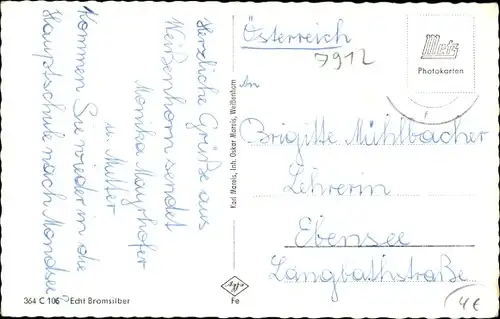 Herzliche Grüße aus
Weißenhorn sendet
Monika Mayrhofer
u. Mutter
Kommen Sie wieder in die
Hauptschule nach Mondsee?
364 C 106 Echt Bromsilber
Karl Mareis, Inh. Oskar Mareis, Weißenhorn
Agfa
Fe
Österreich
7912
Metz
Photokarten
An
Brigitte Mühlbacher
Lehrerin
Ebensee
Langbathstraße
4€